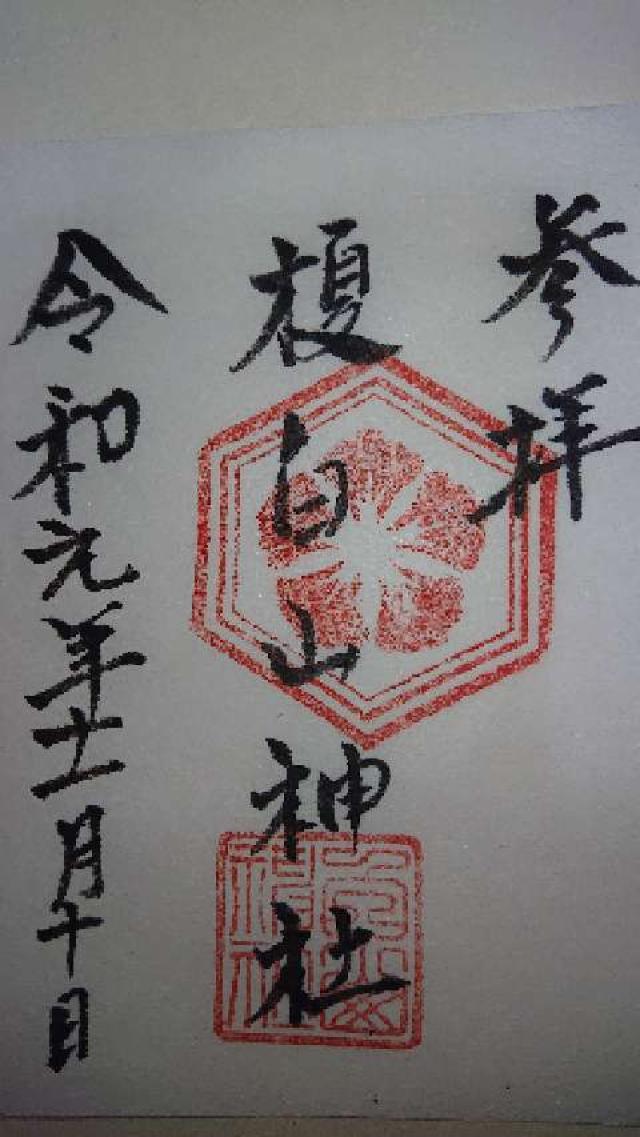 参拝
榎白山神社
令和元年十一月十日